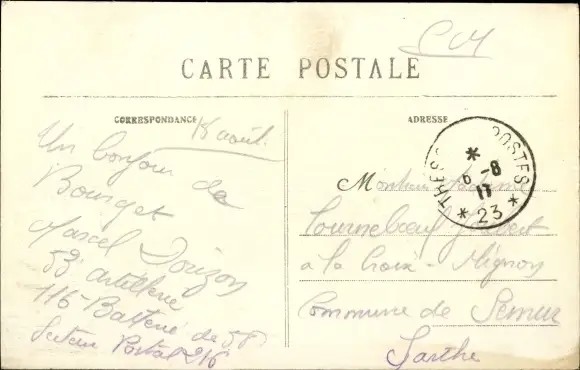 CM
CARTE POSTALE
CORRESPONDANCE
ADRESSE
18 août
Un bonjour de
Bourget
Marcel Doizon
53e artillerie
116e Batterie de 58
Secteur Postal 216
TRÉSOR POSTES
* 6-8
17
* 23 *
Monsieur Madame
Tournebœuf
à la Croix-Mignon
Commune de Semur
Sarthe